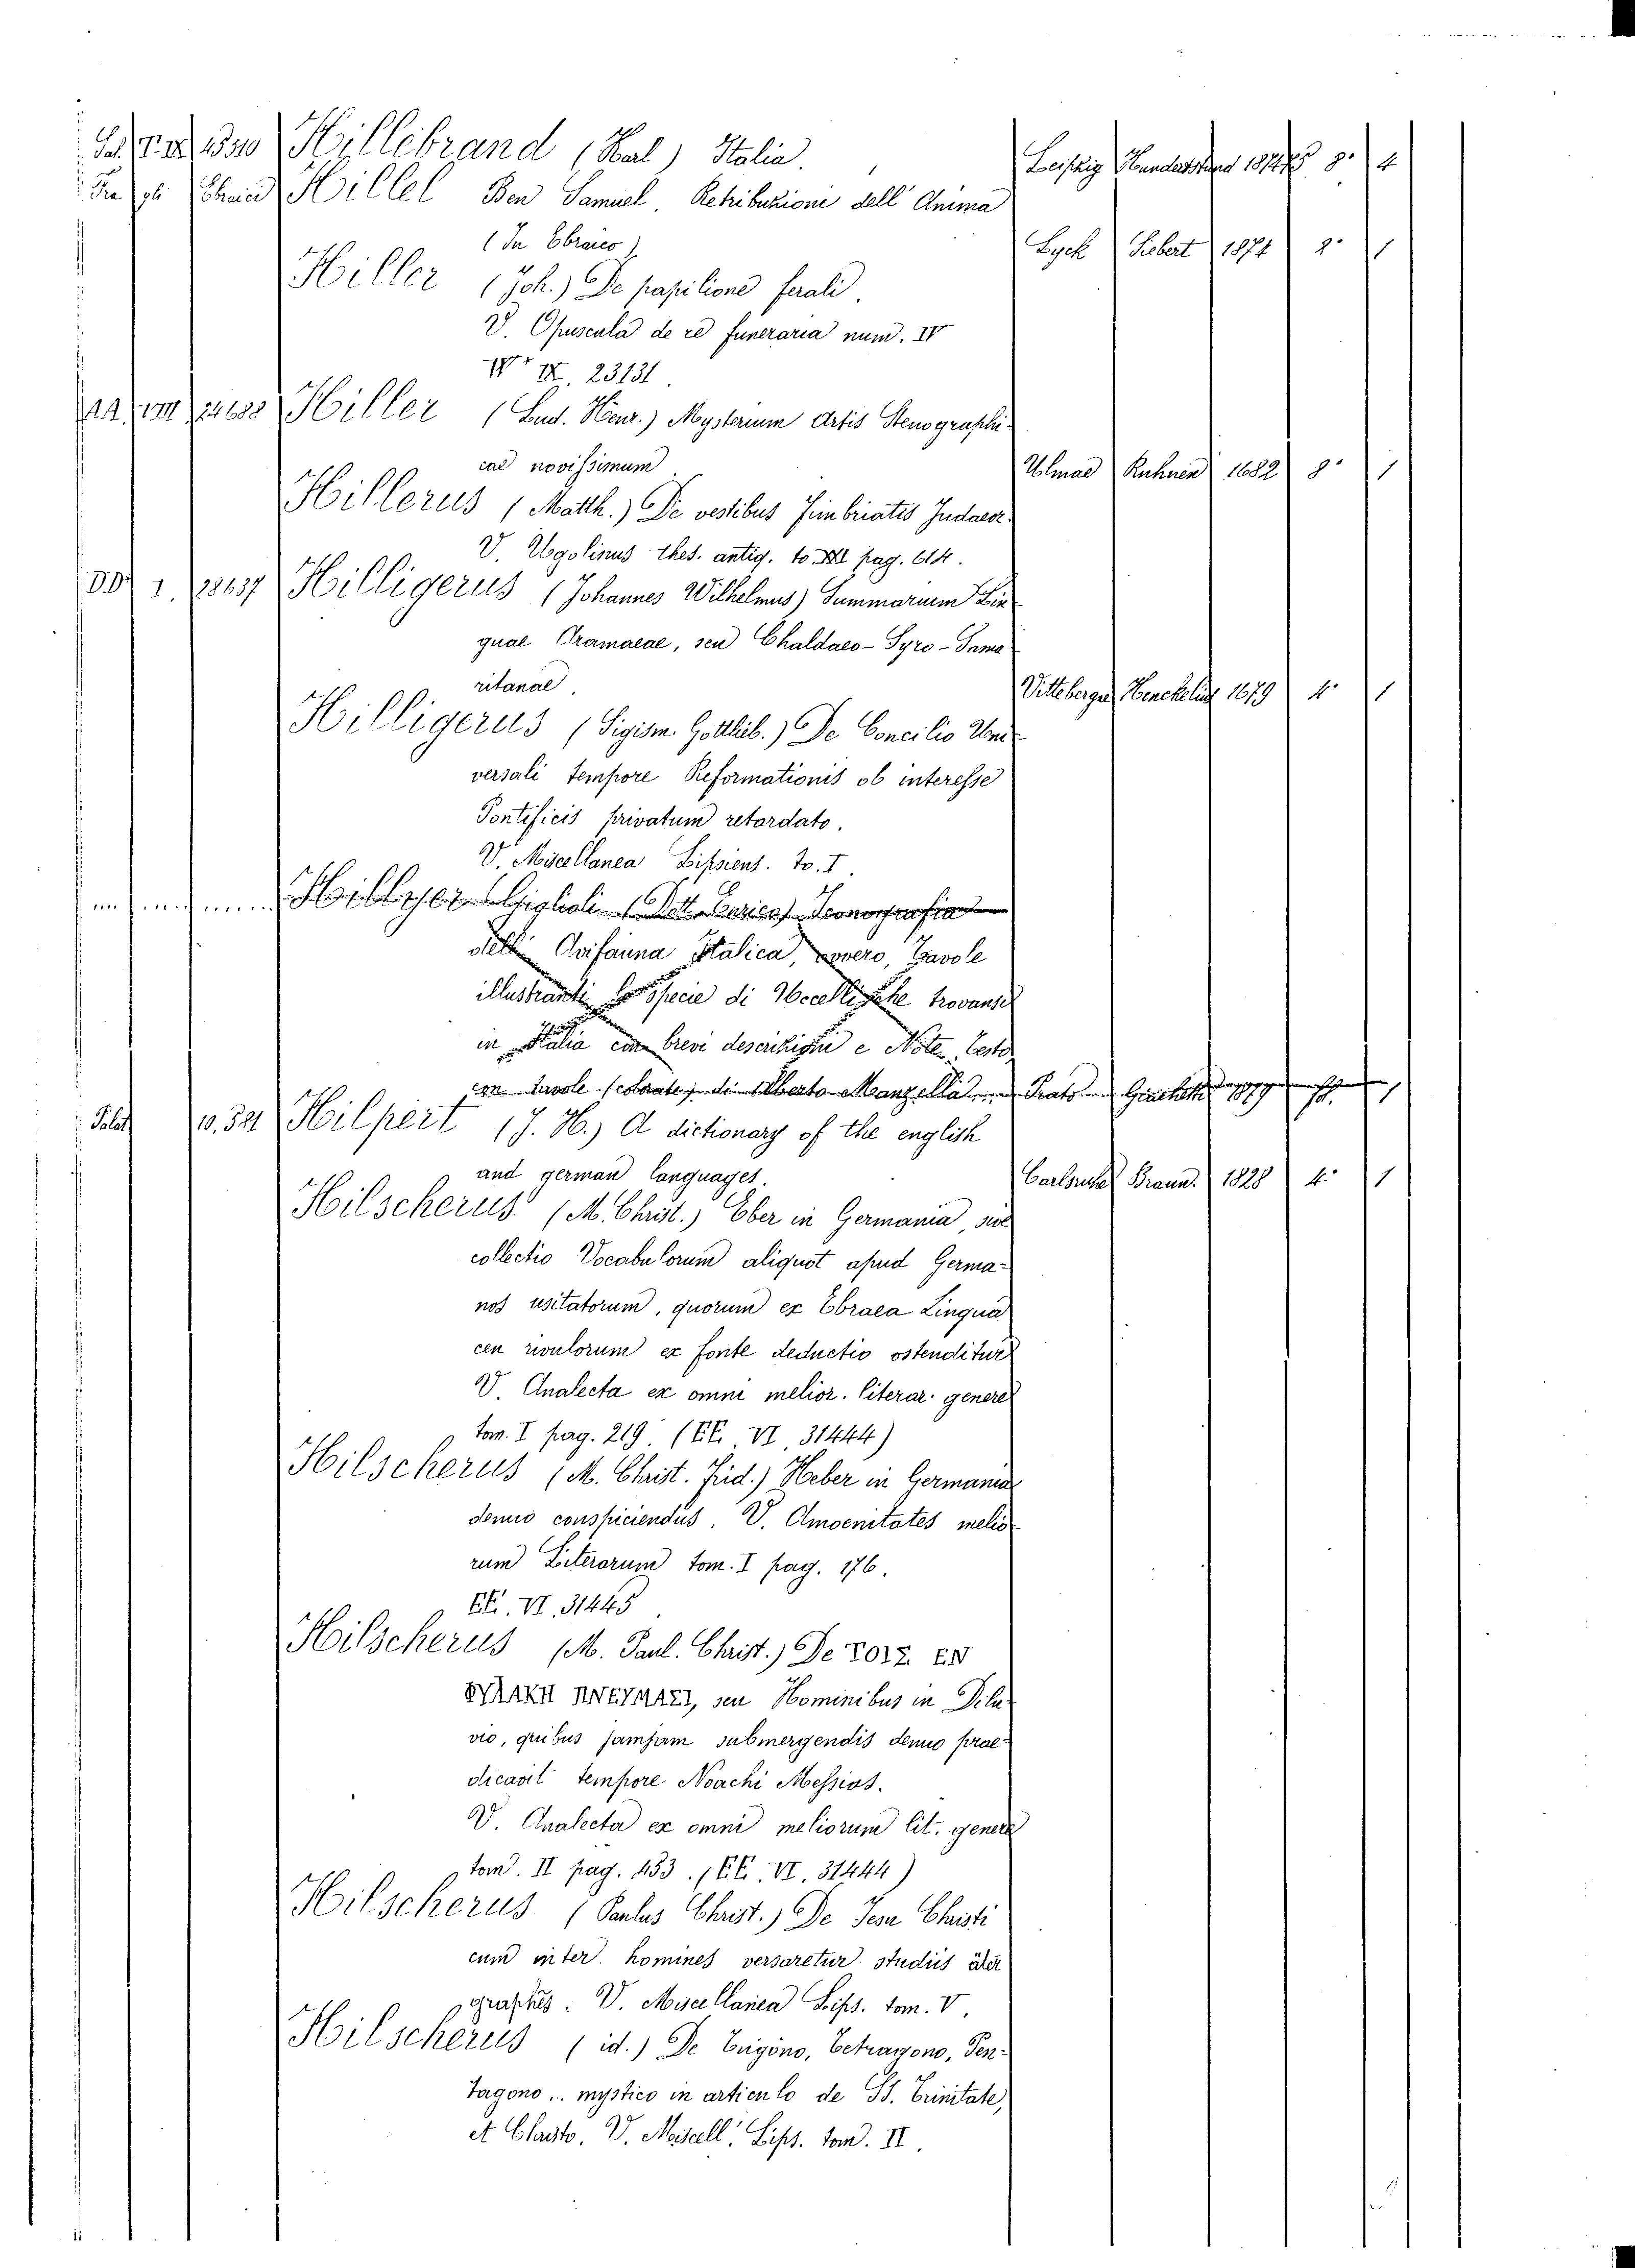 Hillebrand (Karl) Italia. Leipzig 8° 4
Tra gli Hillel Ben Samuel, Retribuzione dell' Anima
(In Ebraico) Lyck Siebert 1874 8° 1
Hiller (Joh.) De papilione ferali.
V. Opuscula de re funeraria num. IV
IX. 23131
Hiller (Lud. Henr.) Mysterium Artis Stenographi-
cae novissimum Ulmae Kuhnen 1682 8° 1
Hillerus (Matth.) De vestibus fimbriatis Judaeor.
V. Ugolinus thes. antiq. to. XXI pag. 614.
DD 1. 28637 Hilligerus (Johannes Wilhelmus) Summarium Lin
guae Aramaeae, seu Chaldaeo-Syro-Sama
ritanae Vitteberge Henckelius 1679 4° 1
Hilligerus (Sigism. Gottlieb.) De Concilio Uni
versali tempore Reformationis ob interesse
Pontificis privatum retardato.
V. Miscellanea Lipsiens. To. I.
Hillyer Giglioli (Dott. Enrico) Iconografia
dell' Avifauna Italica, ovvero, Tavole
illustranti le specie di Uccelli che trovansi
in Italia con brevi descrizioni e Note. Testo
con tavole (colorate) di Alberto Manzella Prato Giachetti 1879 fol. 1
Palat 10.521 Hilpert (J. H.) A dictionary of the english
and german languages. Carlsruhe Braun. 1828 4° 1
Hilscherus (M. Christ.) Eber in Germania, sive
collectio Vocabulorum aliquot apud Germa-
nos usitatorum, quorum ex Ebraea Lingua
ceu rivulorum ex fonte deductio ostenditur
V. Analecta ex omni melior. literar. genere
tom. I pag. 219. (EE. VI. 31444)
Hilscherus (M. Christ. Frid.) Heber in Germania
denuo conspiciendus. V. Amoenitates melio
rum Literarum tom. I pag. 176.
EE. VI. 31445
Hilscherus (M. Paul. Christ.) De ΤΟΙΣ ΕΝ
ΦΥΛΑΚΗ ΠΝΕΥΜΑΣΙ, seu Hominibus in Dilu
vio, quibus jamjam submergendis denuo prae-
dicavit tempore Noachi Messias.
V. Analecta ex omni meliorum lit. genere
tom. II pag. 433. (EE. VI. 31444)
Hilscherus (Paulus Christ.) De Jesu Christi
cum inter homines versaretur studiis
V. Miscellanea Lips. tom. V.
Hilscherus (id.) De Trigono, Tetragono, Pen-
tagono... mystico in articulo de SS. Trinitate,
et Christo. V. Miscell. Lips. tom. II.